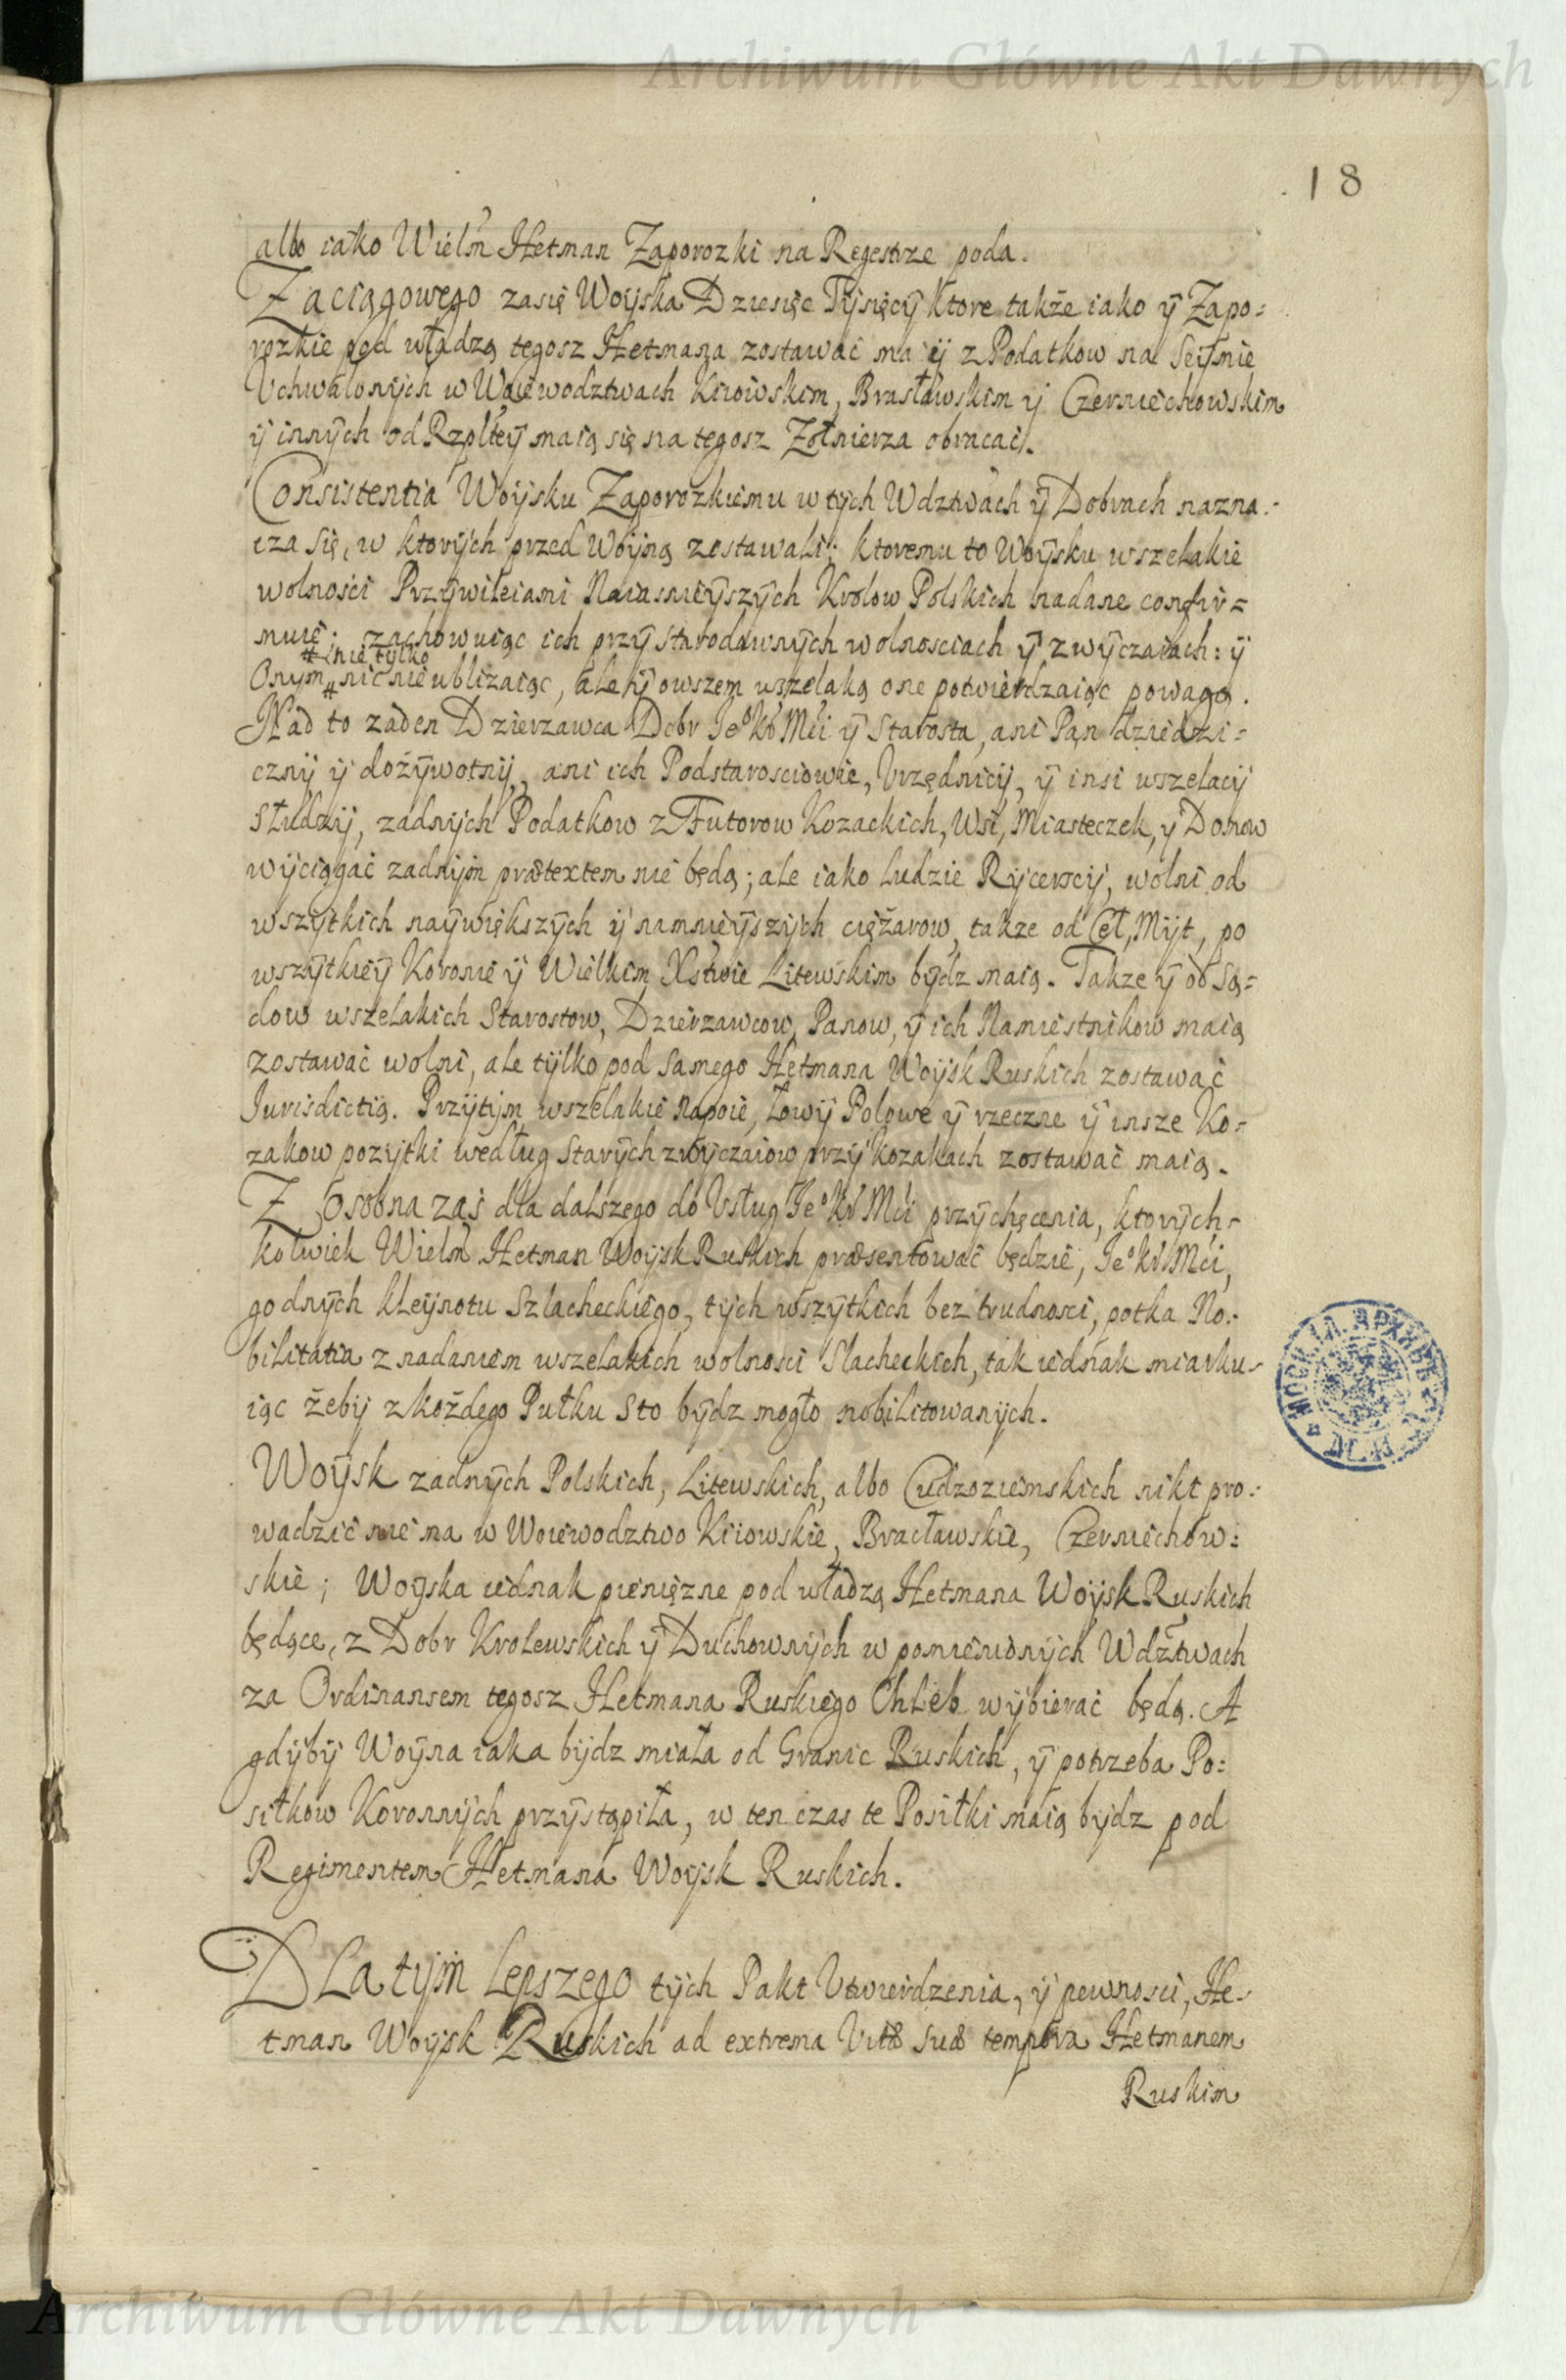 Archiwum Główne Akt Dawnych
18
albo iako Wielm Hetman Zaporozki na Regestrze poda.
Zaciągowego zasię Woÿska Dziesięc Tÿsięcÿ Ktore także iako ÿ Zapo=
rozkie pod władzą tegosz Hetmana zostawać ma ÿ z Podatkow na Seÿmie
Vchwalonÿch w Woiewodztwach Kiiowskim, Brasławskim ÿ Czerniechowskim
ÿ innÿch od Rzplteÿ maią się na tegosz Żołnierza obracać.
Consistentia Woÿsku Zaporozkiemu w tÿch Wdztwach ÿ Dobrach nazna=
cza się, w ktorÿch przed Woÿną zostawali; ktoremu to Woÿsku wszelakie
wolności Przÿwileiami Naiasnieÿszÿch Krolow Polskich nadane confir=
muie; zachowuiąc ich przÿ starodawnÿch wolnosciach ÿ zwÿczaiach: ÿ
# inie tÿlko
Onym # nic nie ubliżaiąc, ale ÿ owszem wszelaką one potwierdzaiąc powagą.
Nad to żaden Dzierzawca Dobr Ieo Kr Mci ÿ Starosta, ani Pan dziedzi=
cznÿ ÿ dożÿwotnÿ, ani ich Podstarosciowie, Vrzędnicÿ, ÿ insi wszelacÿ
Słudzÿ, żadnÿch Podatkow z Futorow Kozackich, Wsi, Miasteczek, ÿ Domow
wÿciągać żadnÿm prætextem nie będą; ale iako ludzie Rÿcerscÿ, wolni od
wszÿtkich naÿwiększÿch ÿ namnieÿszÿch ciężarow, takze od Ceł, Mÿt, po
wszÿtkieÿ Koronie ÿ Wielkim Xstwie Litewskim bÿdz maią. Takze ÿ od Są=
dow wszelakich Starostow, Dzierzawcow, Panow, ÿ ich Namiestnikow maią
zostawać wolni, ale tÿlko pod samego Hetmana Woÿsk Ruskich zostawać
Iurisdictią. Przÿtÿm wszelakie napoie, Łowÿ Polowe ÿ rzeczne ÿ insze Ko=
zakow pozÿtki według starÿch zwÿczaiow przÿ kozakach zostawać maią.
Z Osobna zaś dla dalszego do Vsług Ieo Kr Mci przÿchęcenia, ktorÿch=
kolwiek Wielm Hetman Woÿsk Ruskich præsentować będzie, Ieo Kr Mci,
godnÿch kleÿnotu Szlacheckiego, tÿch wszÿtkich bez trudnosci, potka No=
bilitatia z nadaniem wszelakich wolnosci Slacheckich, tak iednak miarku=
iąc żebÿ z każdego Pułku Sto bÿdz mogło nobilitowanÿch.
Woÿsk żadnÿch Polskich, Litewskich, albo Cudzoziemskich nikt pro=
wadzić nie ma w Woiewodztwo Kiiowskie, Bracławskie, Czerniechow=
skie; Woÿska iednak pieniężne pod władzą Hetmana Woÿsk Ruskich
będące, z Dobr Krolewskich ÿ Duchownÿch w pomienionÿch Wdztwach
za Ordinansem tegosz Hetmana Ruskiego Chleb wÿbierać będą. A
gdÿbÿ Woÿna iaka bÿdz miała od Granic Ruskich, ÿ potrzeba Po=
siłkow Koronnÿch przÿstąpiła, w ten czas te Posiłki maią bÿdz pod
Regimentem Hetmana Woÿsk Ruskich.
Dla tÿm lepszego tÿch Pakt Vtwierdzenia, ÿ pewnosci, He=
tman Woÿsk Ruskich ad extrema Vitæ suæ tempora Hetmanem
Ruskim
Archiwum Główne Akt Dawnych